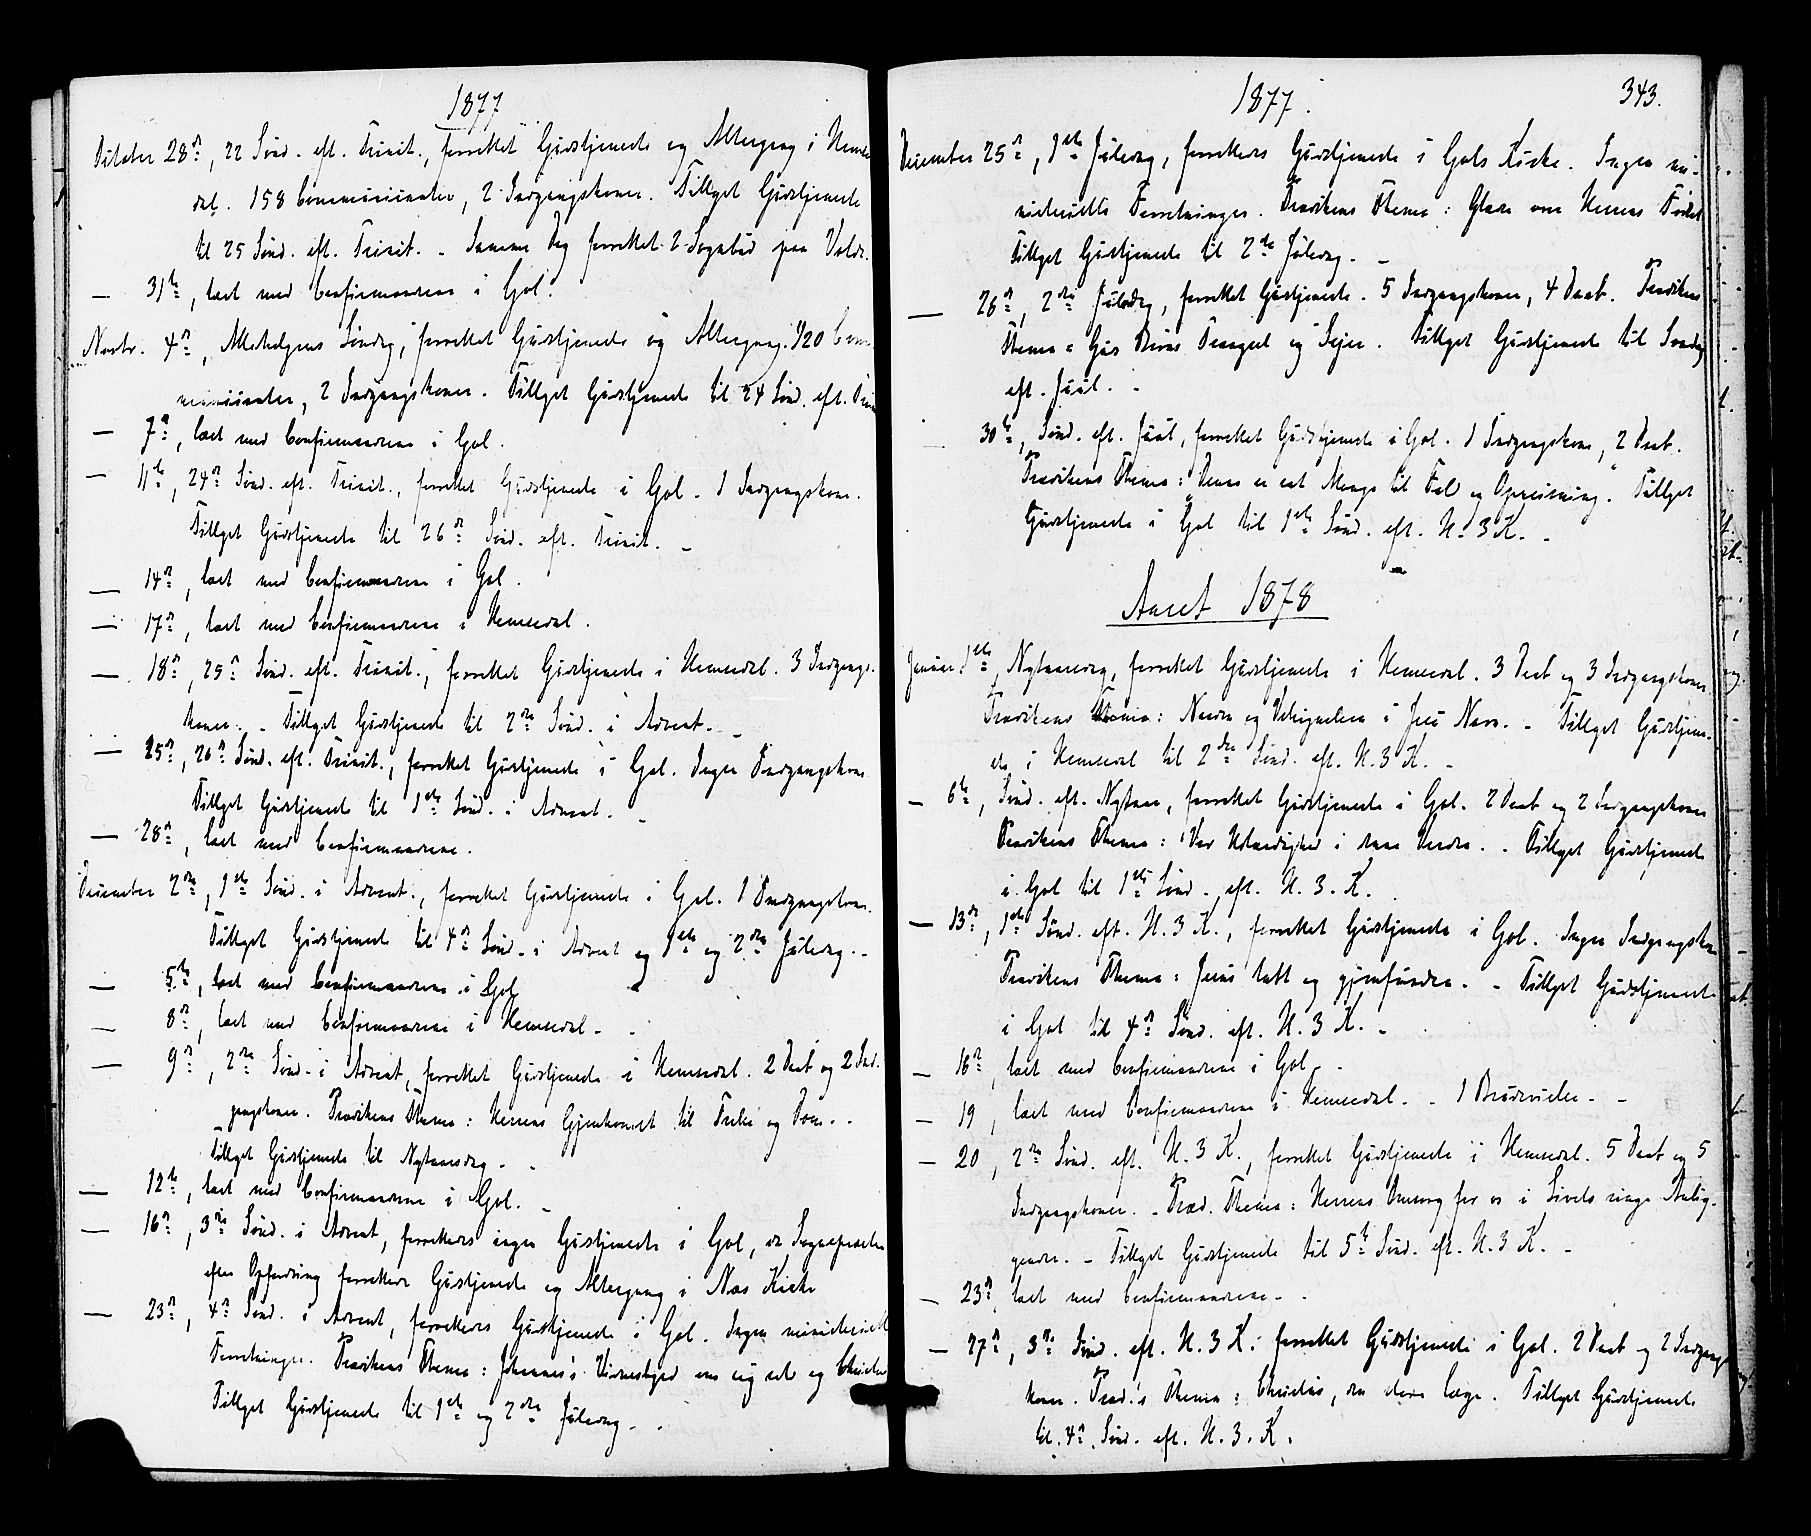 1877
October 28de, 22 Sönd. eft. Trinit., forrettet Gudstjeneste og Altergang i Hemse
dal. 158 Communicanter, 2 Indgangskoner. Tillyst Gudstjeneste
til 25 Sönd. eft. Trinit. - Samme Dag forrettet 2 paa
— 31te, læst med Confirmanderne i Gol.
Novbr. 4de, Allehelgens Söndag, forrettet Gudstjeneste og Altergang. 120 Com
municanter, 2 Indgangskoner. Tillyst Gudstjeneste til 24 Sönd. eft. Trin
— 7de, læst med Confirmanderne i Gol.
— 11te, 24de Sönd. eft. Trinit., forrettet Gudstjeneste i Gol. 1 Indgangskone.
Tillyst Gudstjeneste til 26de Sönd. eft. Trinit. -
— 14de, læst med Confirmanderne i Gol.
— 17de, læst med Confirmanderne i Hemsedal.
— 18de, 25de Sönd. eft. Trinit., forrettet Gudstjeneste i Hemsedal. 3 Indgangs-
koner. - Tillyst Gudstjeneste til 2den Sönd. i Advent. -
— 25de, 26de Sönd. eft. Trinit., forrettet Gudstjeneste i Gol. Ingen Indgangskone
Tillyst Gudstjeneste til 1ste Sönd. i Advent. -
— 28de, læst med Confirmanderne.
December 2den, 1ste Sönd. i Advent, forrettet Gudstjeneste i Gol. 1 Indgangskone.
Tillyst Gudstjeneste til 4de Sönd. i Advent og 1ste og 2den Juledag. -
— 5te, læst med Confirmanderne i Gol
— 8de, læst med Confirmanderne i Hemsedal. -
— 9de, 2den Sönd. i Advent, forrettet Gudstjeneste i Hemsedal. 2 Daab og 2 Ind-
gangskoner. Prædikens Thema: Herrens Gjenkomst til Frelse og Dom. -
Tillyst Gudstjeneste til Nytaarsdag. -
— 12te, læst med Confirmanderne i Gol. -
— 16de, 3die Sönd. i Advent, forrettedes ingen Gudstjeneste i Gol, da Sognepræsten
efter Opfordring forrettede Gudstjeneste og Altergang i Næs Kirke
— 23de, 4de Sönd. i Advent, forrettedes Gudstjeneste i Gol. Ingen ministerielle
Forretninger. Prædikens Thema: Johannes's Vidnesbyrd om sig selv og Christus
Tillyst Gudstjeneste til 1ste og 2den Juledag. -
1877.
343.
December 25de, 1ste Juledag, forrettedes Gudstjeneste i Gols Kirke. Ingen mi-
nisterielle Forretninger. Prædikens Thema: Glæde over Herrens Födsel
Tillyst Gudstjeneste til 2den Juledag. -
— 26de, 2den Juledag, forrettet Gudstjeneste. 5 Indgangskoner, 4 Daab. Prædikens
Thema: Guds Trængsel og Sejer. Tillyst Gudstjeneste til Söndag
eft. Juul. -
30te, Sönd. eft. Juul, forrettet Gudstjeneste i Gol. 1 Indgangskone, 2 Daab.
Prædikens Thema: Denne er sat Mange til Fald og Opreisning. Tillyst
Gudstjeneste i Gol til 1ste Sönd. eft. H. 3 K. -
Aaret 1878
Januar 1ste, Nytaarsdag, forrettet Gudstjeneste i Hemsedal. 3 Daab og 3 Indgangskoner
Prædikens Thema: Naaden og Velsignelsen i Jesu Navn. - Tillyst Gudstjene-
ste i Hemsedal til 2den Sönd. eft. H. 3 K. -
— 6te, Sönd. eft. Nytaar, forrettet Gudstjeneste i Gol. 2 Daab og 2 Indgangskoner
Prædikens Thema: Vor i Verden. - Tillyst Gudstjeneste
i Gol til 1ste Sönd. eft. H. 3. K.
— 13de, 1ste Sönd. eft. H. 3 K., forrettet Gudstjeneste i Gol. Ingen Indgangsko
Prædikens Thema: Jesus tabt og gjenfunden. - Tillyst Gudstjenest
i Gol til 4de Sönd. eft. H. 3 K. -
— 16de, læst med Confirmanderne i Gol. -
— 19, læst med Confirmanderne i Hemsedal. - 1 Brudevielse. -
— 20, 2den Sönd. eft. H. 3 K., forrettet Gudstjeneste i Hemsedal. 5 Daab og 5
Indgangskoner. - Præd. Thema: Herrens Omsorg for os i Livets ringe Anlig-
gender. - Tillyst Gudstjeneste til 5te Sönd. eft. H. 3 K. -
— 23de, læst med Confirmanderne. -
— 27de, 3die Sönd. eft. H. 3 K. forrettet Gudstjeneste i Gol. 2 Daab og 2 Indgangs
koner. Præd.'s Thema: Christus, den store Læge. Tillyst Gudstjeneste
til 4de Sönd. eft. H. 3. K.